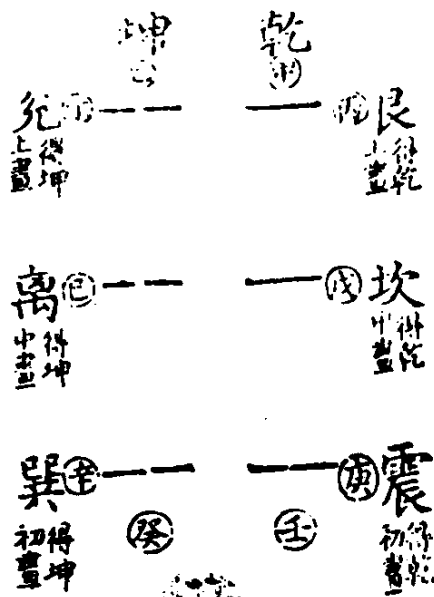 乾
甲
坤
艮
得乾
上畫
兌
得坤
上畫
坎
戊
得乾
中畫
离
己
得坤
中畫
震
庚
得乾
初畫
巽
辛
得坤
初畫
壬
癸